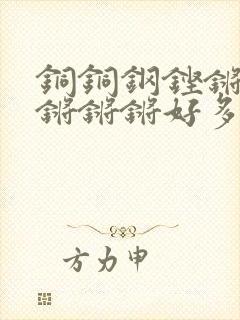 銅銅鋼鏗鏘
鏘鏘鏘好多
方力申